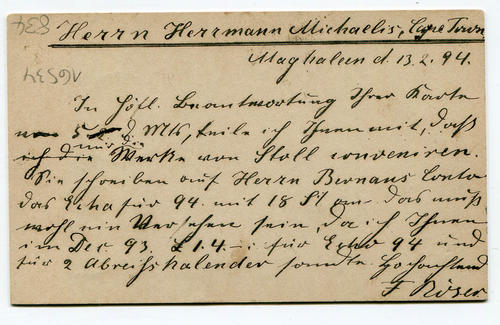 834
16534
Herrn Herrmann Michaelis, Cape Town
Maghaleen d. 13.2.94.
In höfl. Beantwortung Ihrer Karte
5 d Mts, teile ich Ihnen mit, daß
nur die
ich die Werke von Stoll conveniren.
Sie schreiben auf Herrn Bernaus Conto
das Echo für 94. mit 18 Sh an. das muß
wohl ein Versehen sein, da ich Ihnen
im Dec 93. £1.4.-. für Echo 94 und
für 2 Abreißkalender sandte. Hochachtend
F Röser